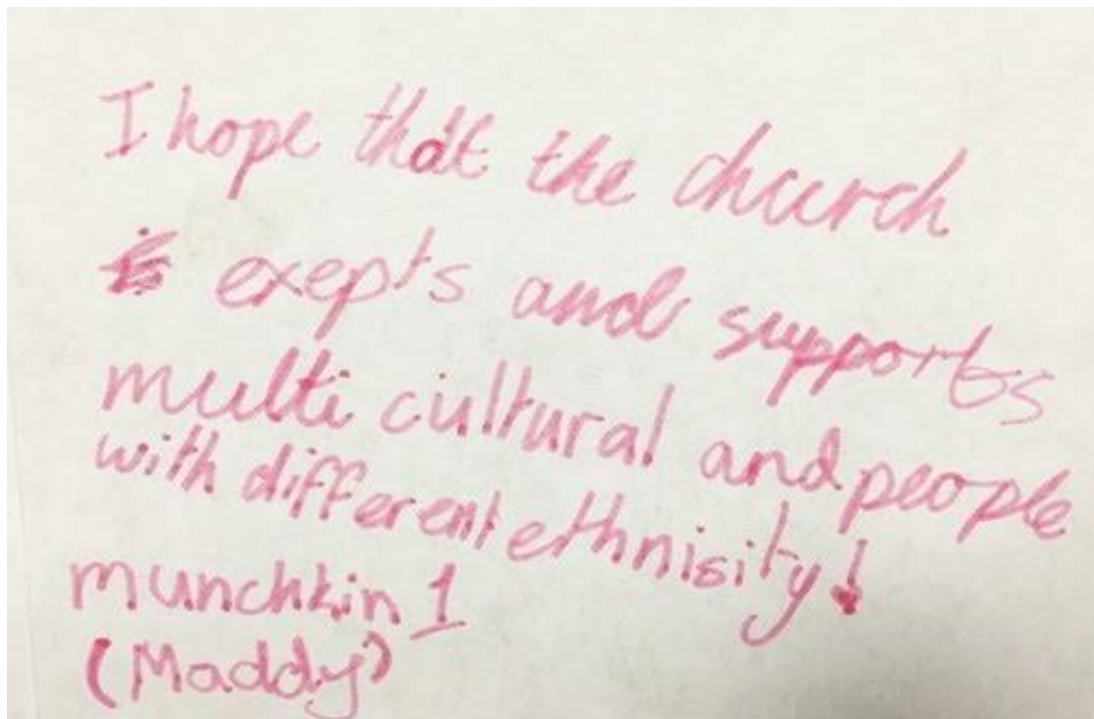 I hope that the church
exepts and supports
multi cultural and people
with different ethnisity!
munchkin 1
(Maddy)